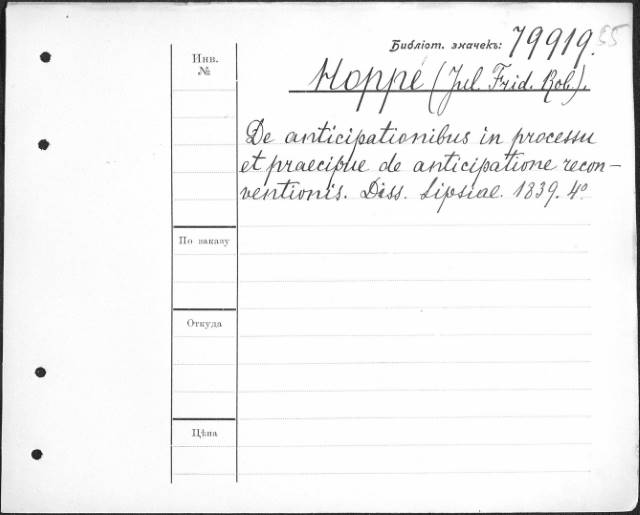 Библіот. значекъ: 79919.55
Инв. №
Hoppé (Jul. Frid. Rob.).
De anticipationibus in processu
et praecipue de anticipatione recon-
ventionis. Diss. Lipsiae. 1839. 4º.
По заказу
Откуда
Цѣна